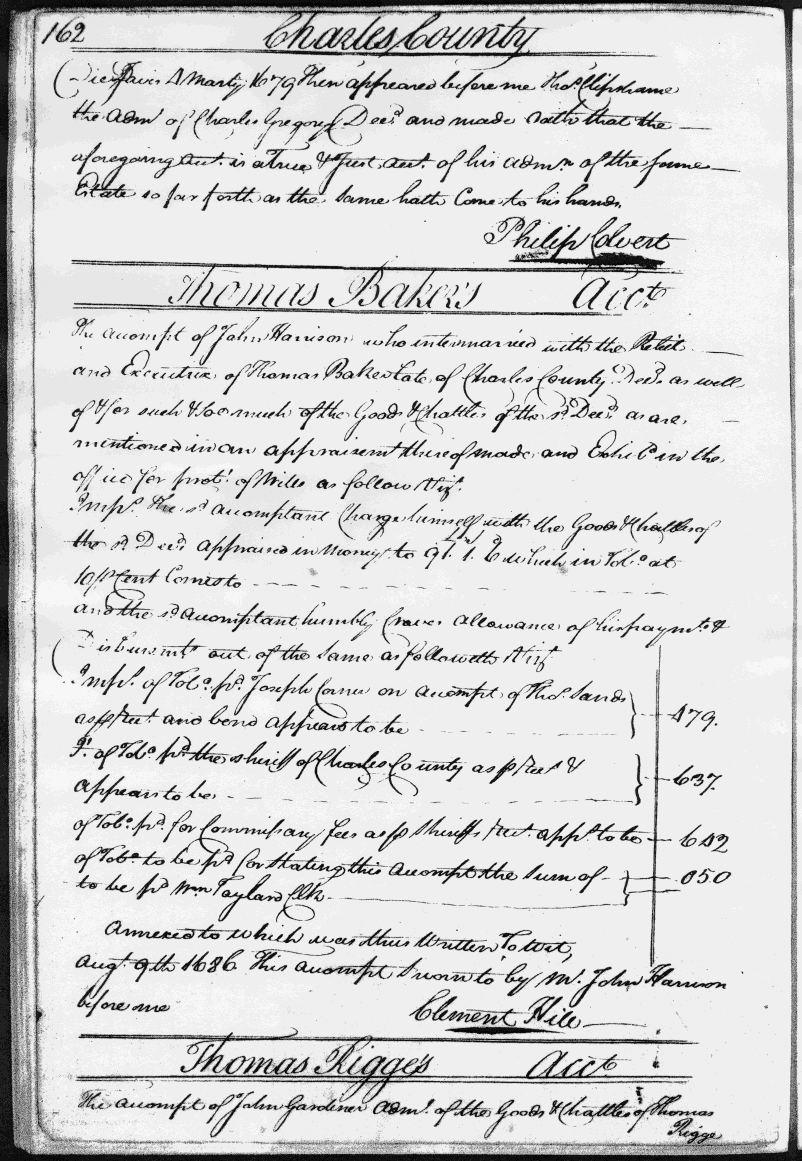 162
Charles County
Die Jovis 4 Marty 1679 Then appeared before me Thos. Clipshame
the Adm.r of Charles Gregory Dec.d and made oath that the
aforegoing acct. is a True & Just acct. of his adm.n of the same
Estate so far forth as the same hath Come to his hands.
Philip Calvert
Thomas Baker's Acct.
The accompt of John Harrison who intermarried with the Relict
and Executrix of Thomas Baker late of Charles County Dec.d as well
of & for such & soe much of the Goods & Chattles of the s.d Dec.d as are
mentioned in an appraisem.t thereof made and Exhib.d in the
office for prob.t of Wills as follow Viz.t
Imp.s The s.d accomptant Charge himself with the Goods & Chattles of
the s.d Dec.d appraised in Money to 91. 1. 6 which in Tob.o at
10/ p Cent Comes to
and the s.d accomptant humbly Craves allowance of his paym.ts &
Disbursem.ts out of the same as followeth Viz.t
Imp.s of Tob.o p.d Joseph Corner on accompt of Tho.s Sands
as p Rect and bond appears to be 479.
of Tob.o p.d the sheriff of Charles County as p Rect &
appears to be 637.
of Tob.o p.d for Commissary fees as p Sheriffs Rect. app.s to be 642
of Tob.o to be p.d for Stating this accompt the Sum of 050
to be p.d Wm Taylard Clk
Annexed to which was thus Written To wit,
Aug.t 9th 1686 This accompt Sworn to by Mr. John Harrison
before me
Clement Hill
Thomas Rigge's Acct.
The accompt of John Gardiner adm.r of the Goods & Chattles of Thomas
Rigge